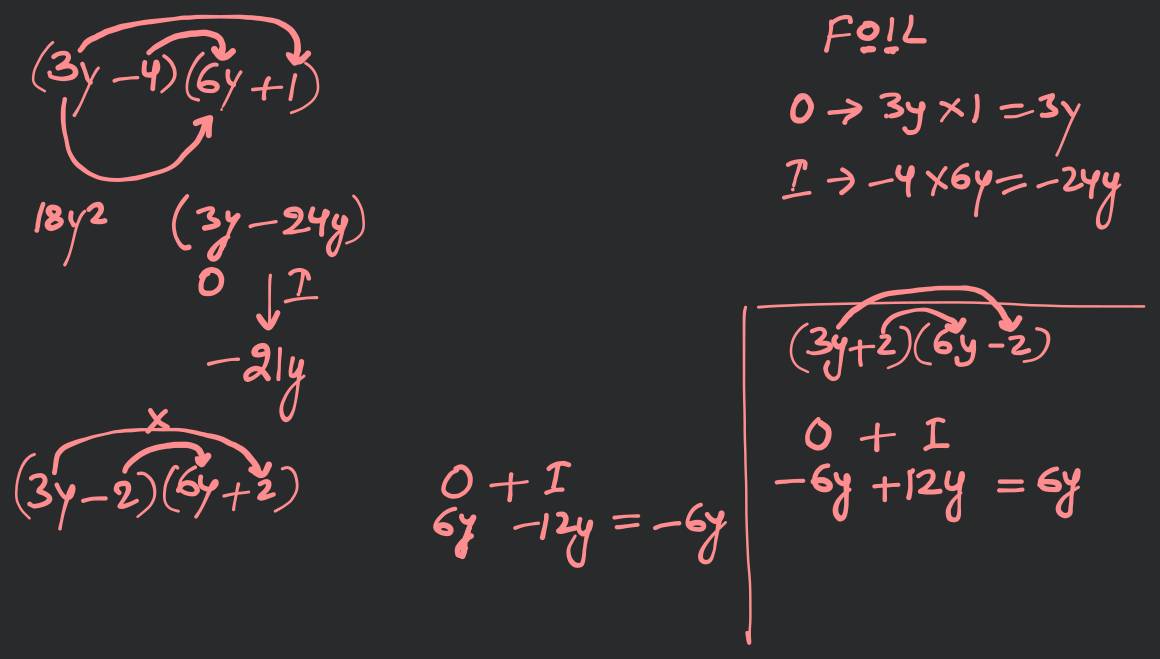 (3y - 4)(6y + 1)
18y² (3y - 24y)
O I
- 21y
x
(3y - 2)(6y + 2)
O + I
6y - 12y = - 6y
FOIL
O → 3y × 1 = 3y
I → - 4 × 6y = - 24y
(3y + 2)(6y - 2)
O + I
- 6y + 12y = 6y